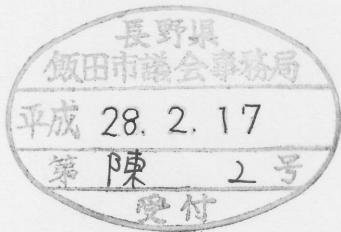 長野県
飯田市議会事務局
平成 28. 2. 17
第 陳 2 号
受付